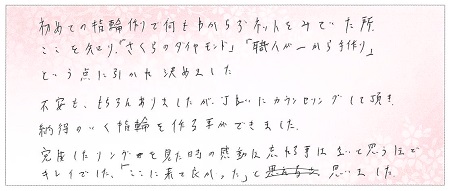 初めての指輪作りで何もわからずネットをみていた所、
ここを知り、「さくらのダイヤモンド」「職人が一から手作り」
という点に引かれ決めました
不安も、もちろんありましたが、丁ねいにカウンセリングして頂き、
納得のいく指輪を作る事ができました。
完成したリングを見た時の感動は忘れる事はないと思うほど
キレイでした、「ここに来て良かった」と思いました。